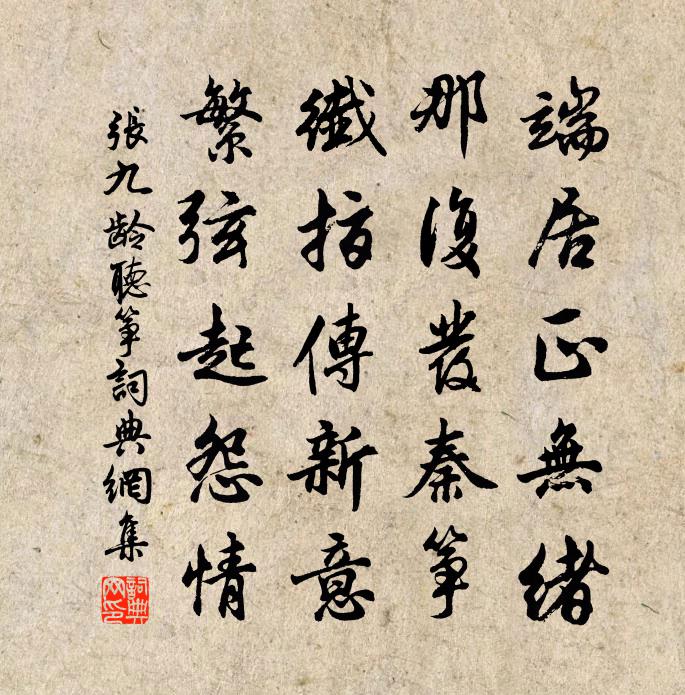 端居正無緒
那復發秦箏
纖指傳新意
繁弦起怨情
張九齡聽箏詞典網集
詞典網印